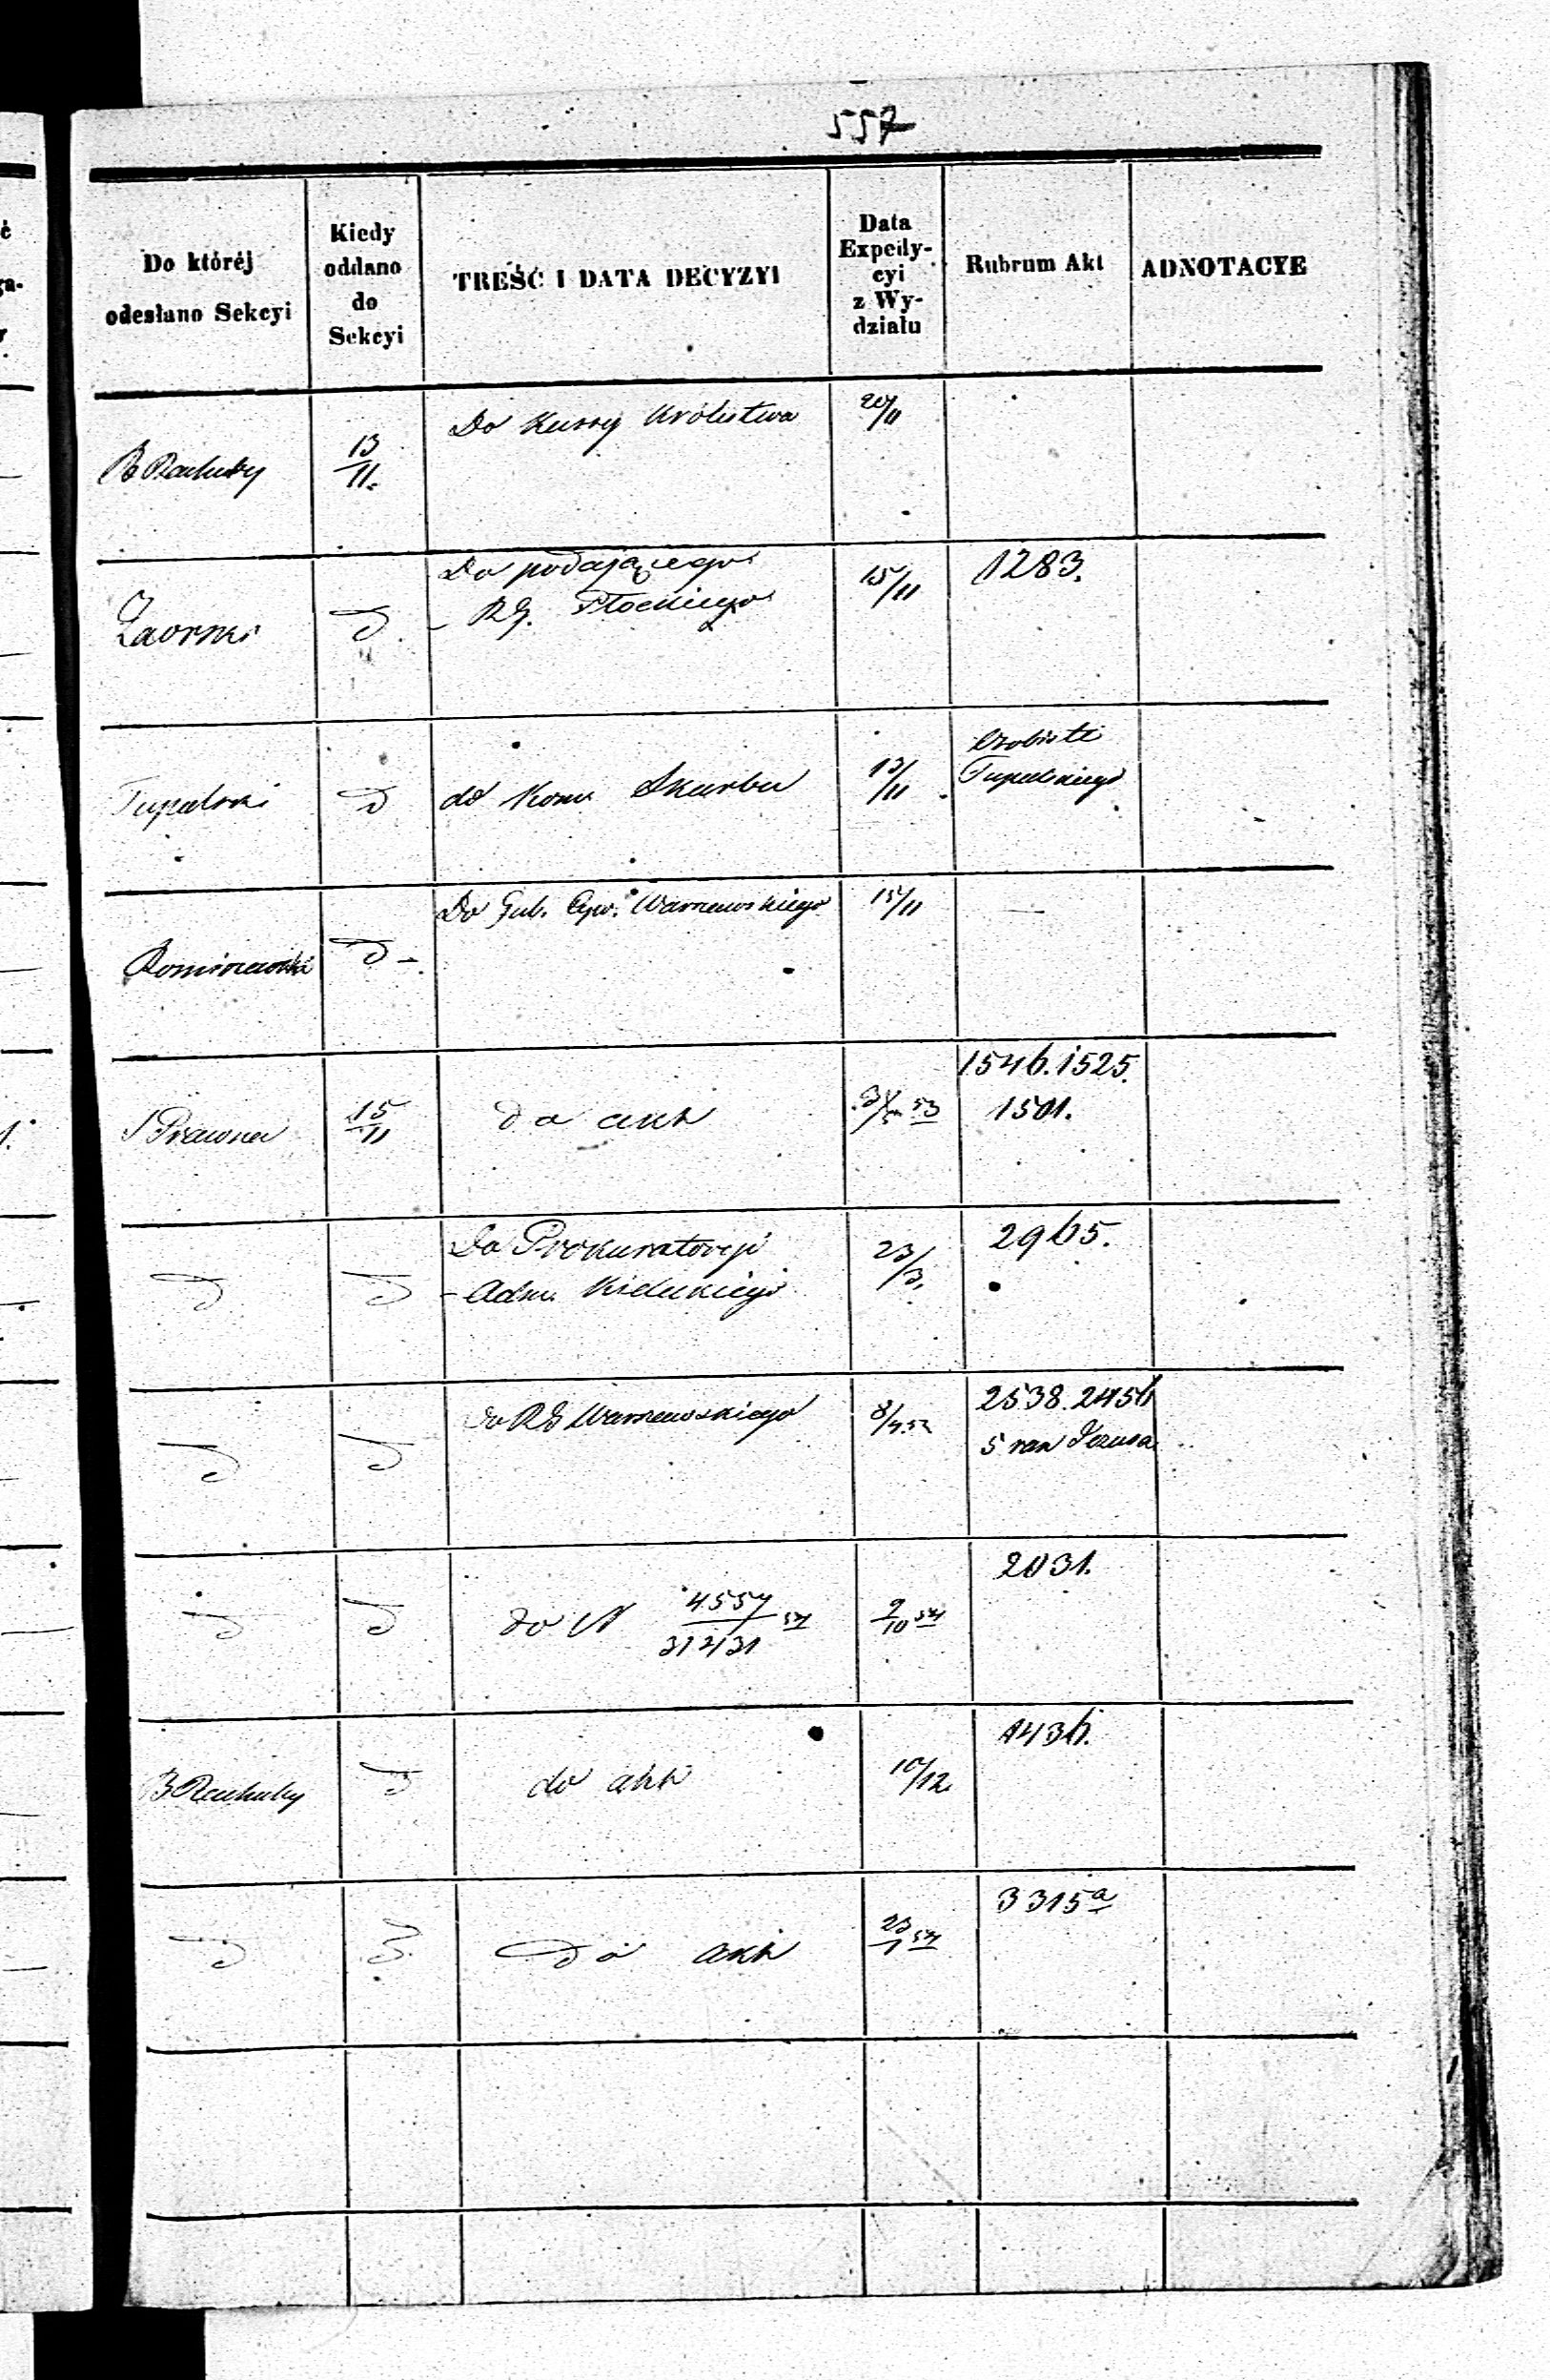 557
Do któréj odesłano Sekcyi
Kiedy oddano do Sekcyi
TREŚĆ I DATA DECYZYI
Data Expedy-cyi z Wy-działu
Rubrum Akt
ADNOTACYE
B Rachuby 13/11. Do Kassy Królestwa 20/11
Zaorski D. Do podającego 15/11 1283.
- RG. Płockiego
Tupalski D do Kom. Skarbu 13/11 Osobiste
Tupalskiego
D - Do Gub. Cyw. Warszawskiego 15/11 —
S Prawna 15/11 do akt 53 1546. 1525.
1501.
D D Do Prokuratoryi 23/3. 2965.
- Adm. Kieleckiego
D D do RG Warszawskiego 2538. 2456
5 ran Jezusa
D D do N 4557/31431 54 9/10 54 2031.
B Rachuby D do akt 10/12 1436.
D D do akt 23/1 54 3315a